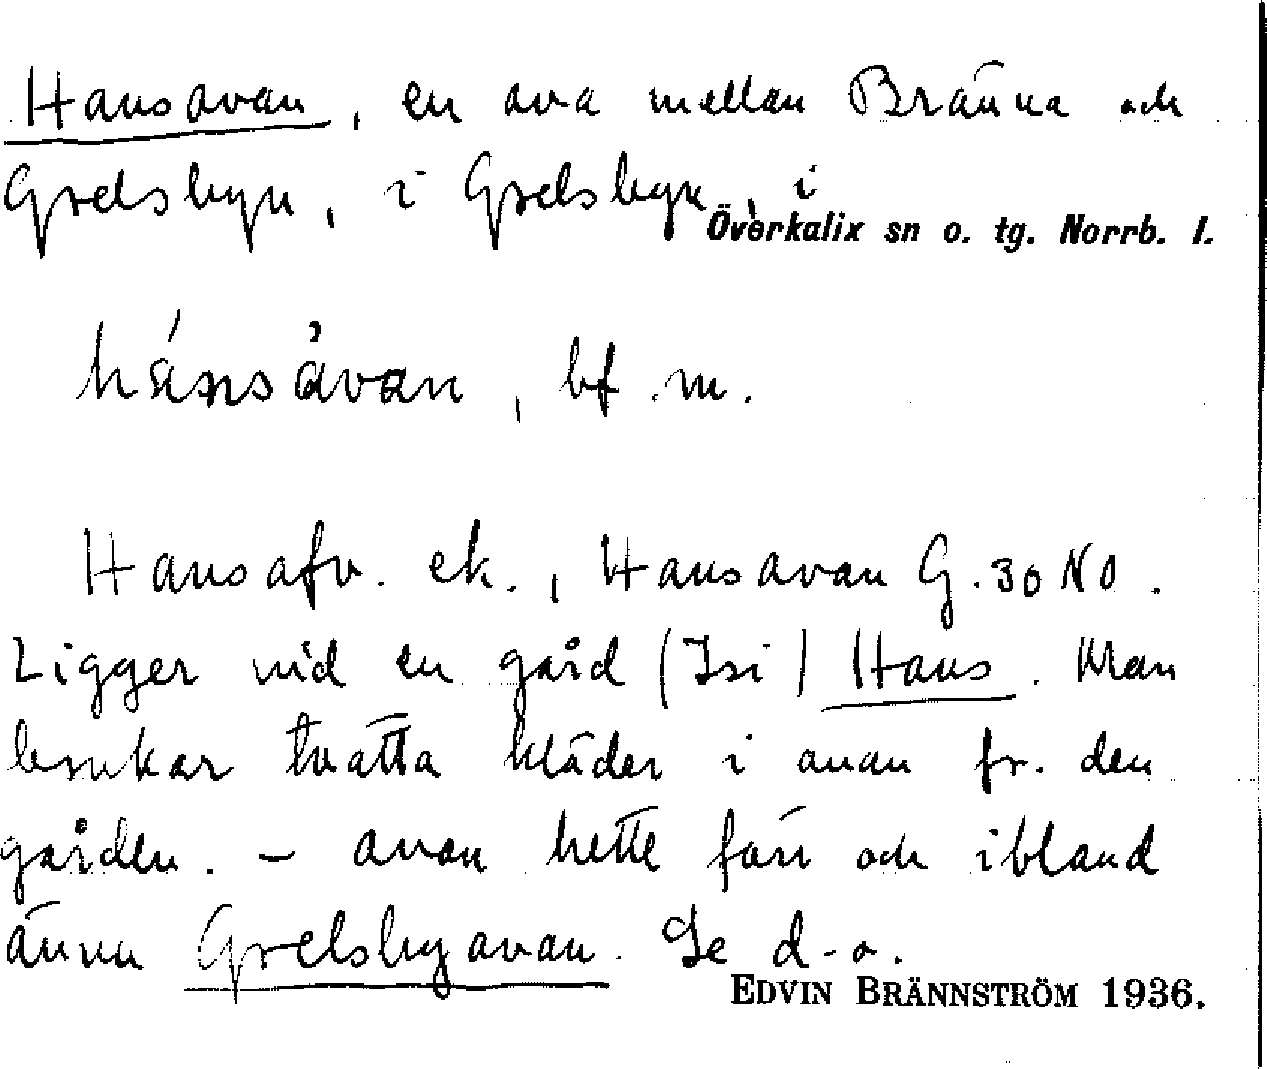 Hansavan, en ava mellan Bränna och
Grelsbyn, i Grelsbyn, i
Överkalix sn o. tg. Norrb. l.
bf. m.
Hansafv. ek., Hansavan G. 30 NO.
Ligger vid en gård (Isi) Hans. Man
brukar tvätta kläder i avan fr. den
gården. – avan hette förr och ibland
ännu Grelsbyavan. Se d. o.
EDVIN BRÄNNSTRÖM 1936.